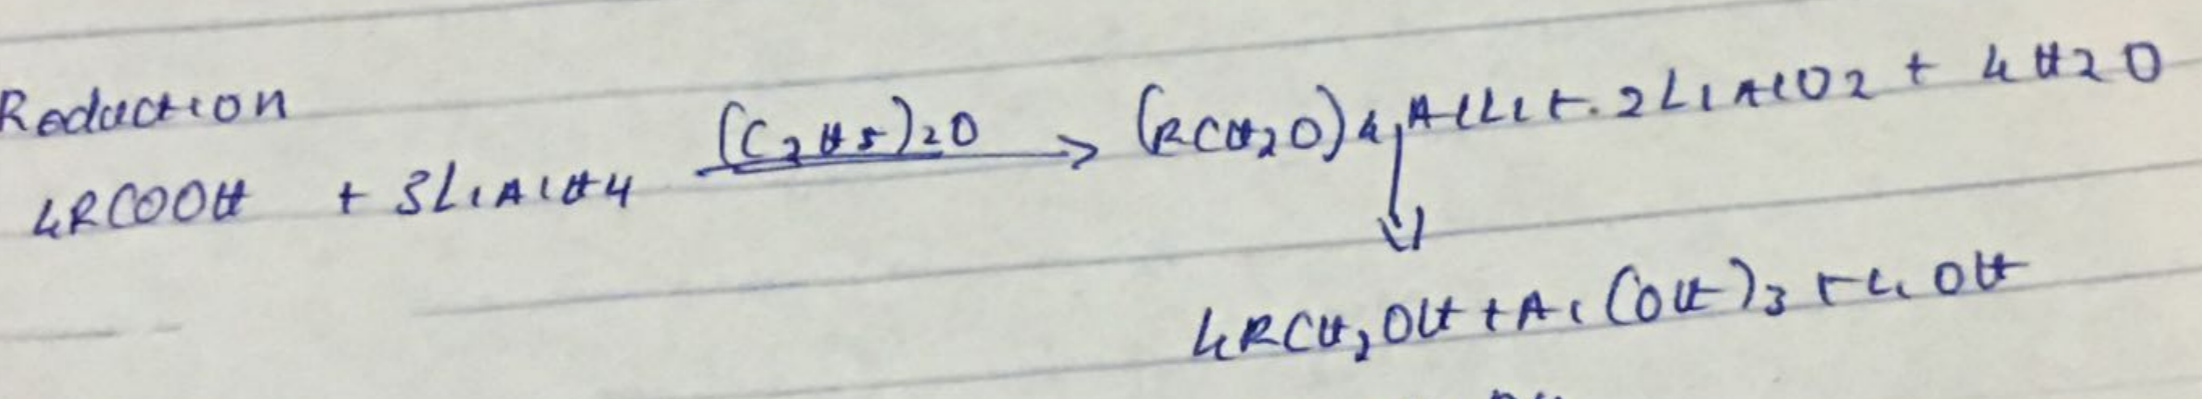 Reduction
4RCOOH + 3LiAlH4 (C2H5)2O → (RCH2O)4AlLi + 2LiAlO2 + 4H2O
4RCH2OH + Al(OH)3 + LiOH